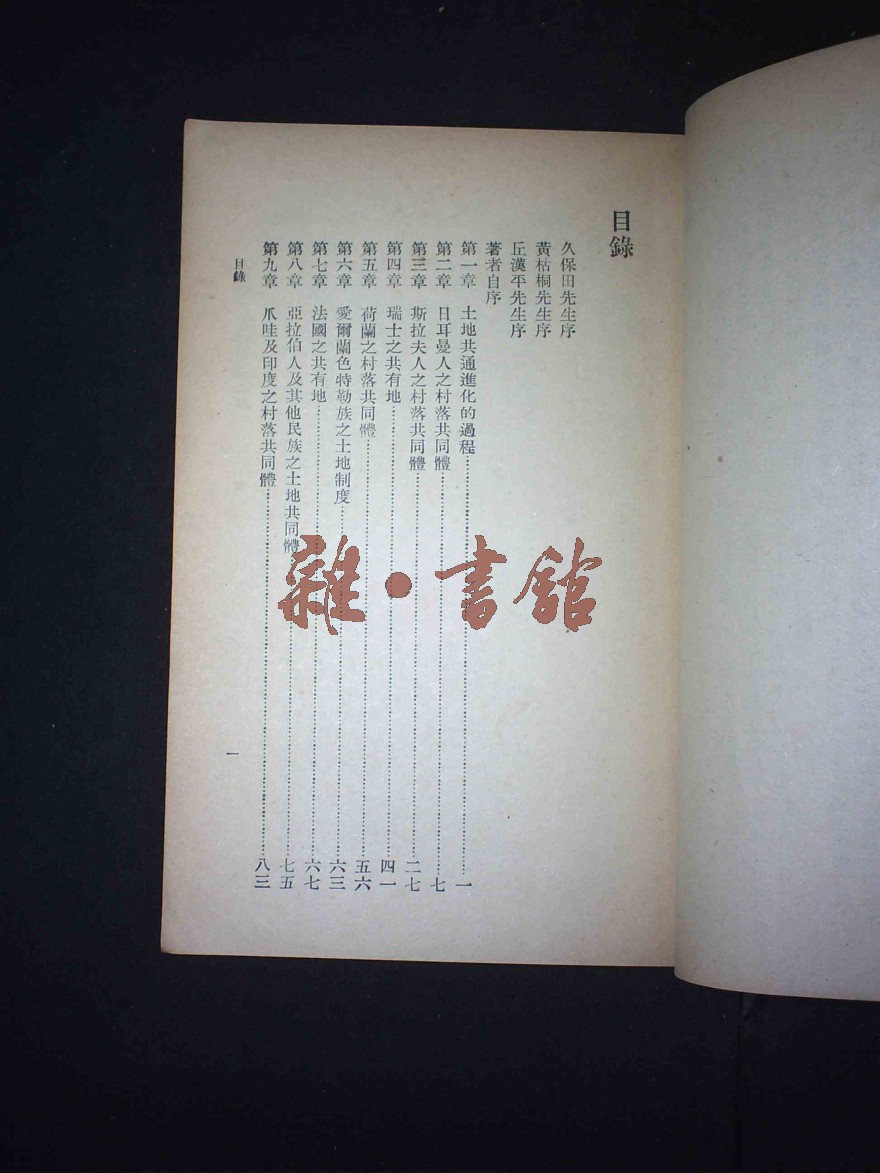 目錄
久保田先生序
黄枯桐先生序
丘漢平先生序
著者自序
第一章　土地共通進化的過程……一
第二章　日耳曼人之村落共同體……七
第三章　斯拉夫人之村落共同體……二七
第四章　瑞士之共有地……四一
第五章　荷蘭之村落共同體……五六
第六章　愛爾蘭色特勒族之土地制度……六三
第七章　法國之共有地……六七
第八章　亞拉伯人及其他民族之土地共同體……七五
第九章　爪哇及印度之村落共同體……八三
目錄
一
雜·書館